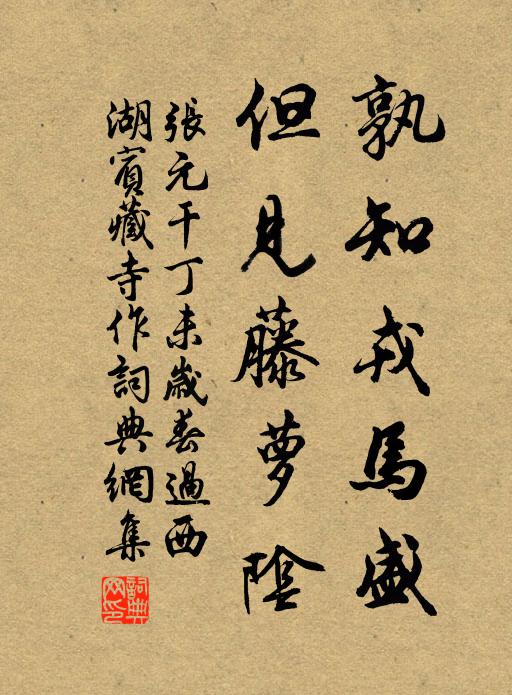 孰知戎馬盛
但見藤夢陰
張元干丁未歲春過西
湖賓藏寺作詞典網集
詞典網印